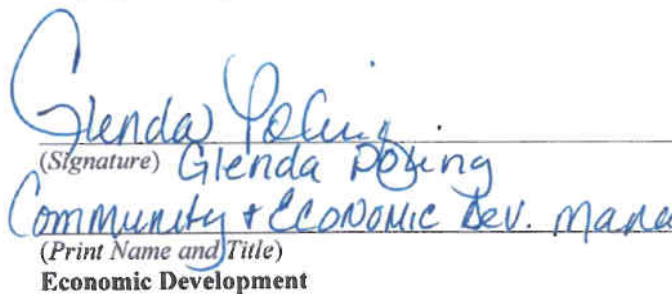 Glenda Poling
(Signature) Glenda Poling
Community + Economic Dev. Mana
(Print Name and Title)
Economic Development